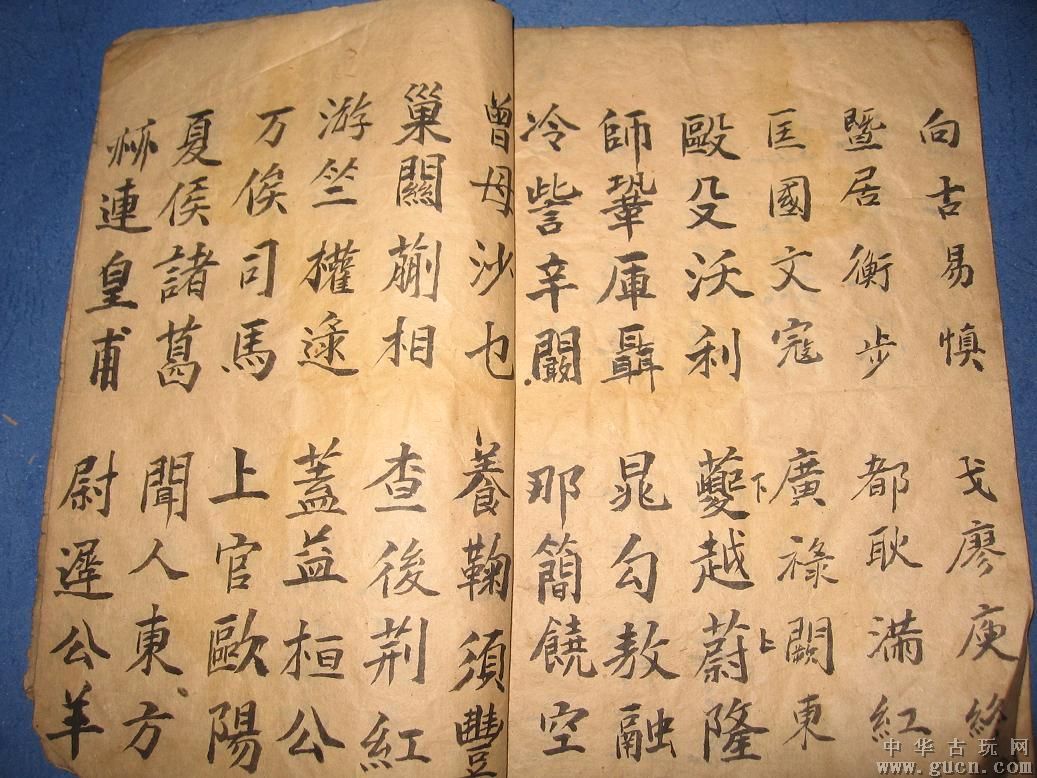 向古易慎 戈廖庾終
暨居衡步 都耿滿紅
匡國文寇 廣祿闕東
下上
毆殳沃利 蘷越蔚隆
師鞏厙聶 晁勾敖融
冷訾辛闞 那簡饒空
曾母沙乜 養鞠須豐
巢關蒯相 查後荊紅
游竺權逯 蓋益桓公
万俟司馬 上官歐陽
夏侯諸葛 聞人東方
赫連皇甫 尉遲公羊
中华古玩网
www.gucn.com